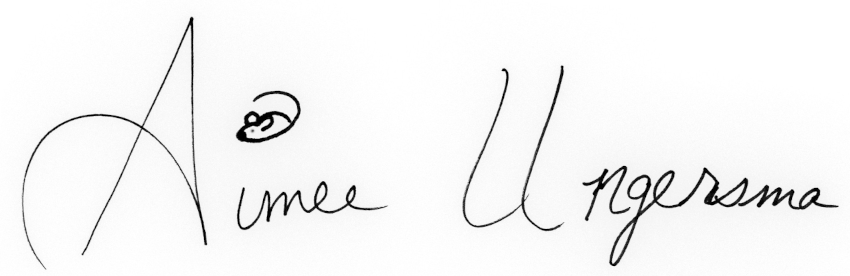 Aimee Ungersma